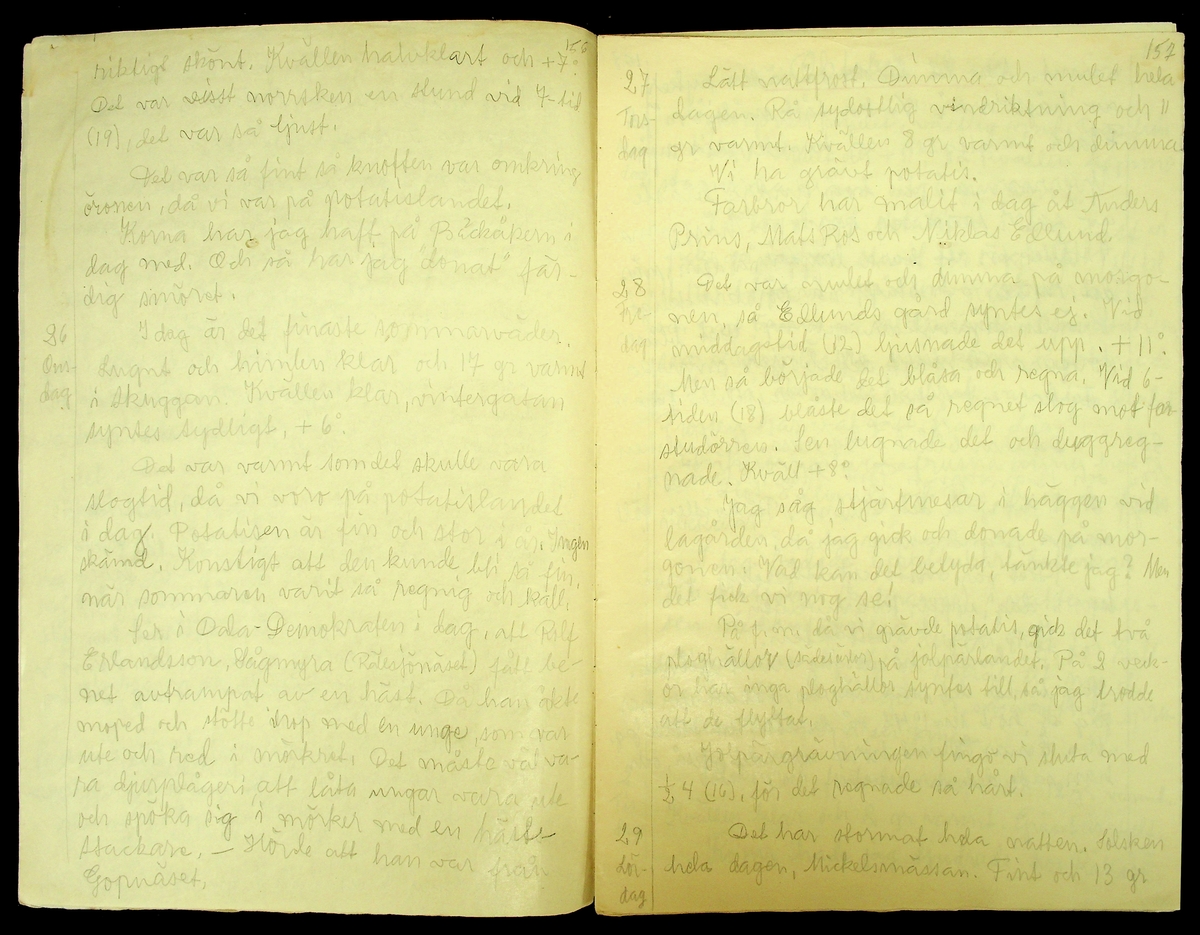 156
riktigt skönt. Kvällen halvklart och +7°.
Det var visst norrsken en stund vid 7-tid
(19), det var så ljust.
Det var så fint så knoften var omkring
öronen, då vi var på potatislandet.
Korna har jag haft på Bäckåkern i
dag med. Och så har jag "donat" fär-
dig smöret.
26
Ons-
dag
I dag är det finaste sommarväder.
Lugnt och himlen klar och 17 gr varmt
i skuggan. Kvällen klar, vintergatan
syntes tydligt, +6°.
Det var varmt som det skulle vara
slogtid, då vi voro på potatislandet
i dag. Potatisen är fin och stor i år. Ingen
skämd. Konstigt att den kunde bli så fin,
när sommaren varit så regnig och kall.
Ser i Dala-Demokraten i dag, att Rolf
Erlandsson, Sågmyra fått be-
net avtrampat av en häst. Då han åkte
moped och stötte ihop med en unge, som var
ute och red i mörkret. Det måste väl va-
ra djurplågeri att låta ungar vara ute
och spöka sig i mörker med en häst-
stackare. — Hörde att han var från
Gopnäset.
157
27
Tors-
dag
Lätt nattfrost. Dimma och mulet hela
dagen. Rå sydostlig vindriktning och 11
gr varmt. Kvällen 8 gr varmt och dimma
Vi ha grävt potatis.
Farbror har malit i dag åt Anders
Prins, Mats Ros och Niklas Edlund.
28
Fre-
dag
Det var mulet och dimma på morgo-
nen, så Edlunds gård syntes ej. Vid
middagstid (12) ljusnade det upp. +11°.
Men så började det blåsa och regna. Vid 6-
tiden (18) blåste det så regnet slog mot far-
studörren. Sen lugnade det och duggreg-
nade. Kväll +8°.
Jag såg stjärtmesar i häggen vid
lagården, då jag gick och donade på mor-
gonen. Vad kan det betyda, tänkte jag? Men
det fick vi nog se!
På f.m. då vi grävde potatis, gick det två
ploghällor (sädesärlor) på jolpärlandet. På 2 veck-
or har inga ploghällor syntes till, så jag trodde
att de flyttat.
Jolpärgrävningen fingo vi sluta med
½ 4 (16), för det regnade så hårt.
29
Lör-
dag
Det har stormat hela natten. Solsken
hela dagen, Mickelsmässan. Fint och 13 gr